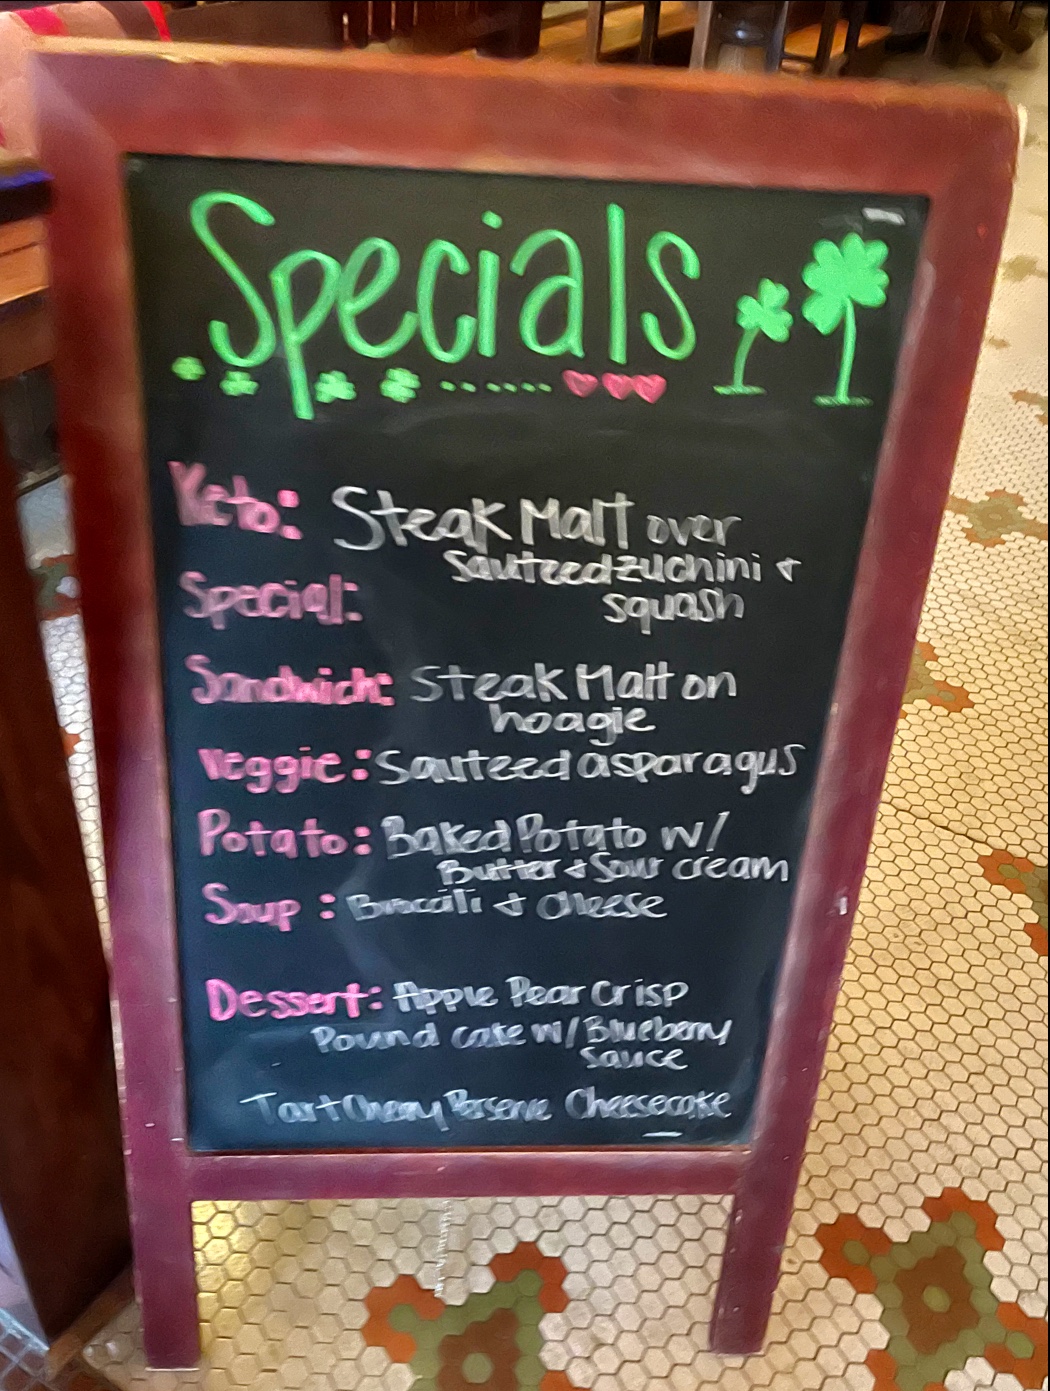 Specials
Keto: Steak Malt over
Sauteed zuchini +
Special: squash
Sandwich: Steak Malt on
hoagie
Veggie: Sauteed asparagus
Potato: Baked Potato w/
Butter + Sour cream
Soup: Broccili + cheese
Dessert: Apple Pear Crisp
Pound cake w/ Blueberry
sauce
Tart Cherry Perserve Cheesecake